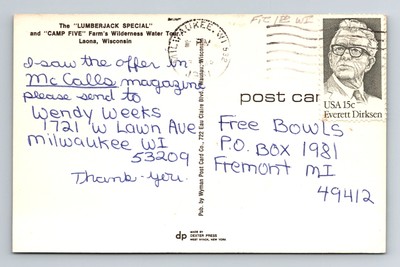 The "LUMBERJACK SPECIAL"
and "CAMP FIVE" Farm's Wilderness Water Tour
Laona, Wisconsin
I saw the offer in
McCalls magazine
please send to
Wendy Weeks
1721 W Lawn Ave
Milwaukee WI
53209
Thank-you.
Pub. by Wyman Post Card Co., 722 Eau Claire Blvd., Wausau, Wisconsin
MILWAUKEE, WI 532
FIC/EE WI
USA 15c
Everett Dirksen
post card
Free Bowls
P.O. BOX 1981
Fremont MI
49412
dp
MADE BY
DEXTER PRESS
WEST NYACK, NEW YORK